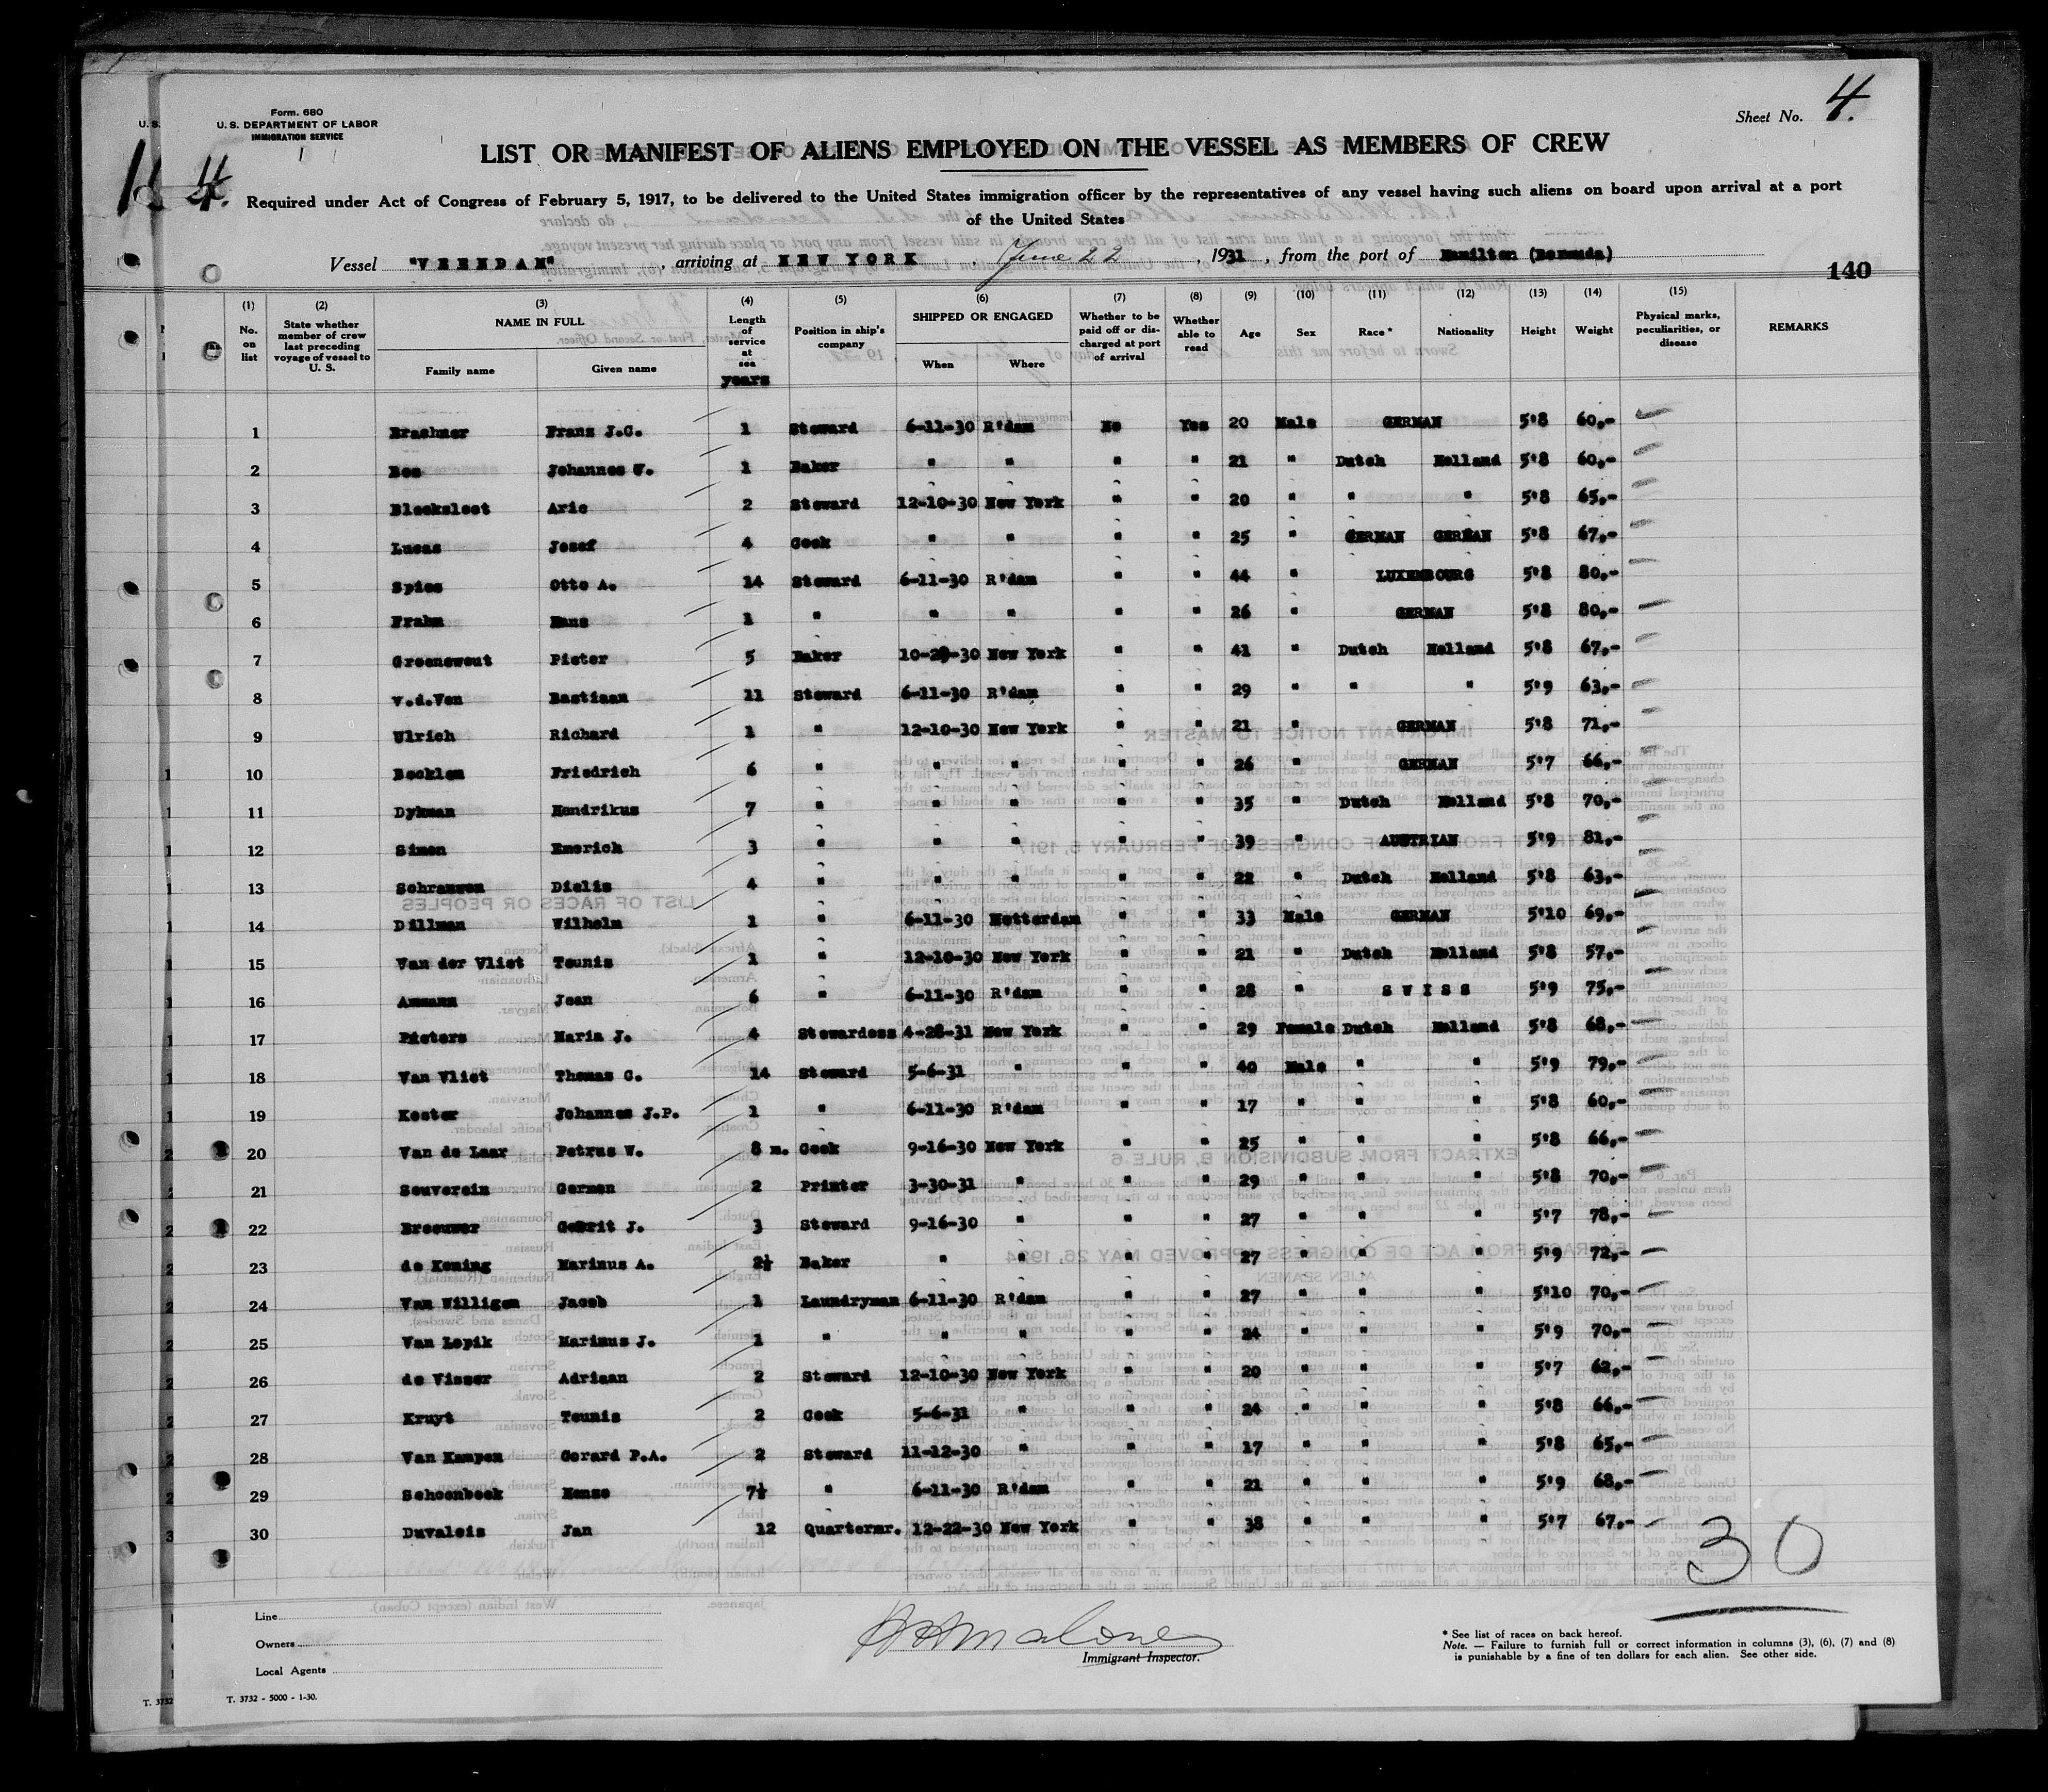 Form. 680
U. S. DEPARTMENT OF LABOR
IMMIGRATION SERVICE
Sheet No. 4.
4.
LIST OR MANIFEST OF ALIENS EMPLOYED ON THE VESSEL AS MEMBERS OF CREW
Required under Act of Congress of February 5, 1917, to be delivered to the United States immigration officer by the representatives of any vessel having such aliens on board upon arrival at a port
of the United States
Vessel "VEENDAM", arriving at NEW YORK, June 22, 1931, from the port of Hamilton (Bermuda)
140
(1) No. on list (2) State whether member of crew last preceding voyage of vessel to U. S. (3) NAME IN FULL Family name Given name (4) Length of service at sea years (5) Position in ship's company (6) SHIPPED OR ENGAGED When Where (7) Whether to be paid off or discharged at port of arrival (8) Whether able to read (9) Age (10) Sex (11) Race* (12) Nationality (13) Height (14) Weight (15) Physical marks, peculiarities, or disease REMARKS
1 Franz J.C. 1 Steward 6-11-30 R'dam No Yes 20 Male GERMAN 5'8 60,-
2 Bos Johannes W. 1 Baker " " " " 21 " Dutch Holland 5'8 60,-
3 Bleeksloot Arie 2 Steward 12-10-30 New York " " 20 " " " 5'8 65,-
4 Lucas Josef 4 Cook " " " " 25 " GERMAN GERMAN 5'8 67,-
5 Spies Otto A. 14 Steward 6-11-30 R'dam " " 44 " LUXEMBOURG 5'8 80,-
6 Frahm Hans 1 " " " " " 26 " GERMAN 5'8 80,-
7 Groenewout Pieter 5 Baker 10-29-30 New York " " 41 " Dutch Holland 5'8 67,-
8 v.d.Ven Bastiaan 11 Steward 6-11-30 R'dam " " 29 " " " 5'9 63,-
9 Ulrich Richard 1 " 12-10-30 New York " " 21 " GERMAN 5'8 71,-
10 Becklem Friedrich 6 " " " " " 26 " GERMAN 5'7 66,-
11 Dykman Hendrikus 7 " " " " " 35 " Dutch Holland 5'8 70,-
12 Simon Emerich 3 " " " " " 39 " AUSTRIAN 5'9 81,-
13 Schrauwen Dielis 4 " " " " " 22 " Dutch Holland 5'8 63,-
14 Dillman Wilhelm 1 " 6-11-30 Rotterdam " " 33 Male GERMAN 5'10 69,-
15 Van der Vliet Teunis 1 " 12-10-30 New York " " 21 " Dutch Holland 5'8 57,-
16 Ammann Jean 6 " 6-11-30 R'dam " " 28 " SWISS 5'9 75,-
17 Pieters Maria J. 4 Stewardess 4-28-31 New York " " 29 Female Dutch Holland 5'8 68,-
18 Van Vliet Thomas C. 14 Steward 5-6-31 " " " 40 Male " " 5'9 79,-
19 Koster Johannes J.P. 1 " 6-11-30 R'dam " " 17 " " " 5'8 60,-
20 Van de Laar Petrus W. 8 m. Cook 9-16-30 New York " " 25 " " " 5'8 66,-
21 Souverein Germen 2 Printer 3-30-31 " " " 29 " " " 5'8 70,-
22 Breeuwer Gerrit J. 3 Steward 9-16-30 " " " 27 " " " 5'7 78,-
23 de Koning Marinus A. 2½ Baker " " " " 27 " " " 5'9 72,-
24 Van Willigen Jacob 1 Laundryman 6-11-30 R'dam " " 27 " " " 5'10 70,-
25 Van Lopik Marinus J. 1 " " " " " 24 " " " 5'9 70,-
26 de Visser Adriaan 2 Steward 12-10-30 New York " " 20 " " " 5'7 62,-
27 Kruyt Teunis 2 Cook 5-6-31 " " " 24 " " " 5'8 66,-
28 Van Kampen Gerard P.A. 2 Steward 11-12-30 " " " 17 " " " 5'8 65,-
29 Schoonbeek Hense 7½ " 6-11-30 R'dam " " 21 " " " 5'9 68,-
30 Duvalois Jan 12 Quartermr. 12-22-30 New York " " 38 " " " 5'7 67,-
30
Line
Owners
Local Agents
Malone
Immigrant Inspector.
* See list of races on back hereof.
Note. — Failure to furnish full or correct information in columns (3), (6), (7) and (8)
is punishable by a fine of ten dollars for each alien. See other side.
T. 3732 - 5000 - 1-30.